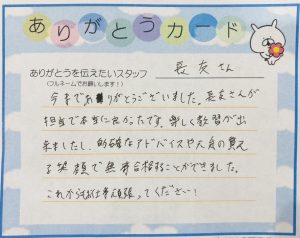 ありがとうカード
ありがとうを伝えたいスタッフ
(フルネームでお願いします！)
長友さん
今まであありがとうございました。長友さんが
担当で本当に良かったです。楽しく教習が出
来ましたし、的確なアドバイスや大友の見え
る笑顔で無事合格することができました。
これからもお仕事頑張ってください！